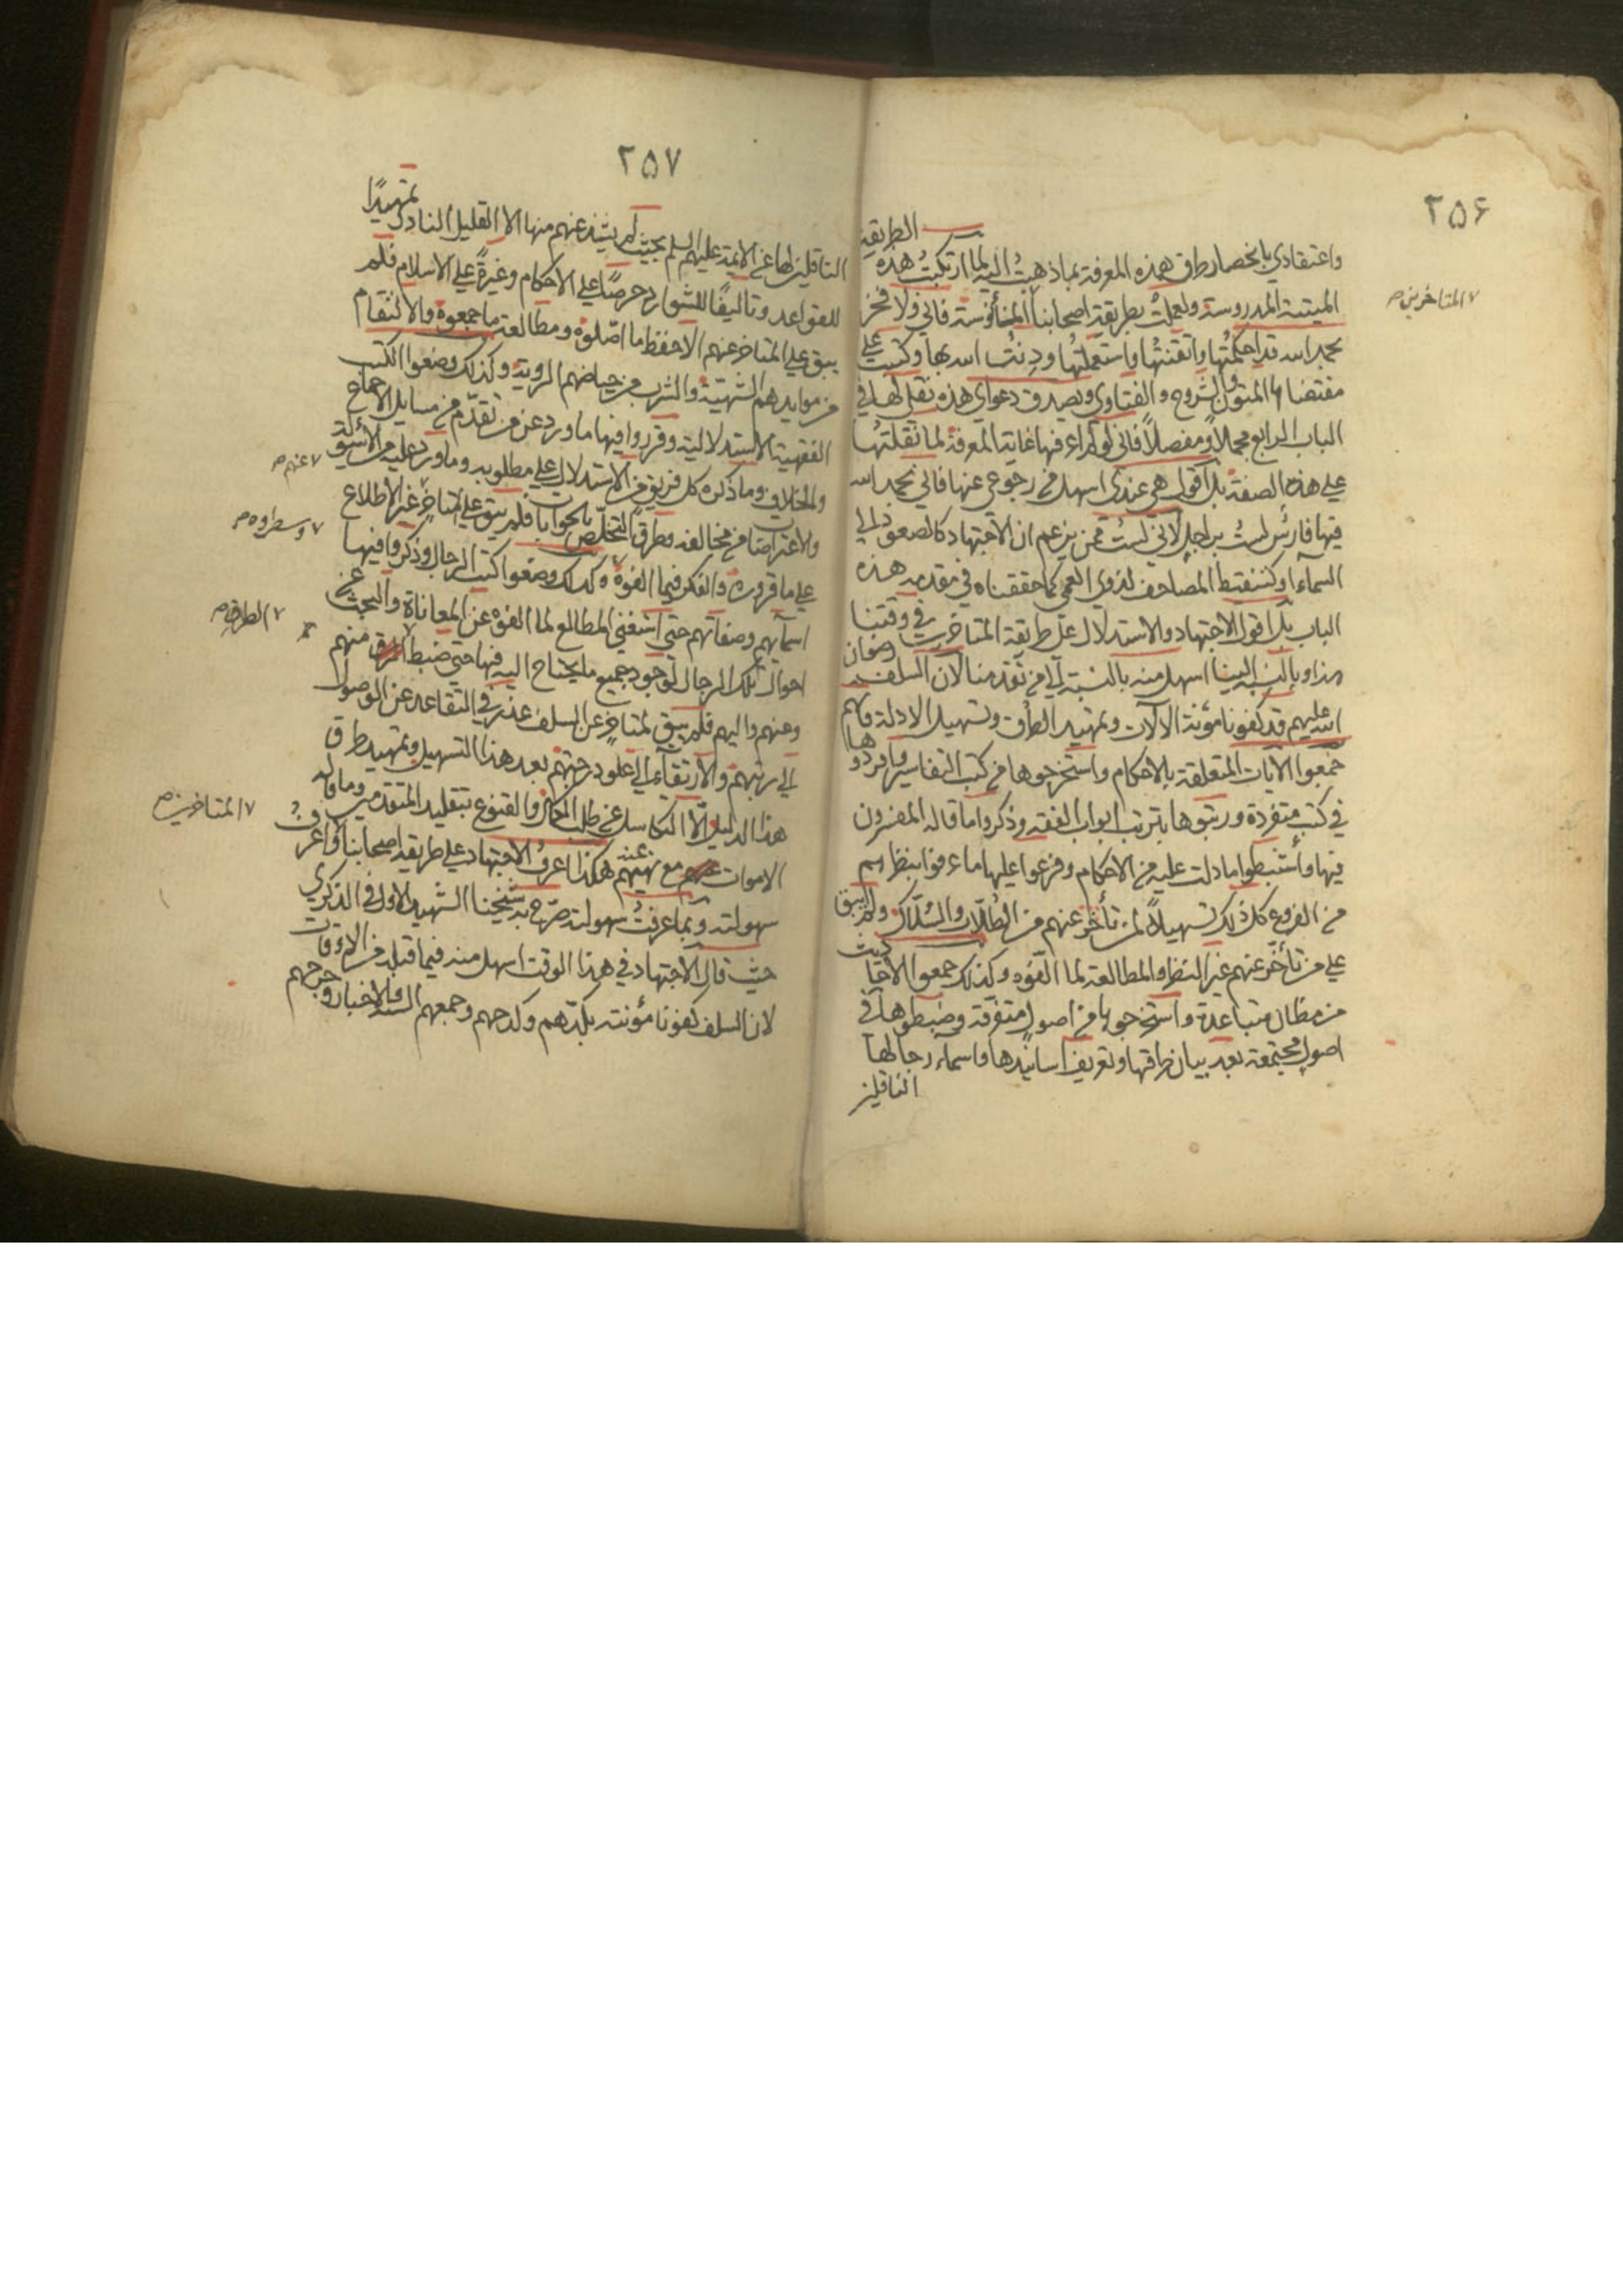 ٢٥۶
الطريقة
واعتقادي بانحصار طرق هذه المعرفة بما ذهبت اليه لما ارتكبت هذه
الميتة المدروسة ولعملت بطريقة اصحابنا المأنوسة فاني ولا فخر
المتاخرين صح
بحمد الله قد احكمتها واتقنتها واستعملتها ودنت الله بها وكتبت على
مقتضاها المتون والشروح والفتاوي ويصدق دعواي هذه نقلي لها في
الباب الرابع مجملاً ومفصلاً فاني لو لم اعرفها غاية المعرفة لما نقلتها
على هذه الصفة بل اقول هي عندي اسهل من رجوعي عنها فاني بحمد الله
فيها فارس لست براجل لاني لست ممن يزعم ان الاجتهاد كالصعود الى
السماء او كتنقيط المصاحف لذوي العمى كما حققناه في مقدمة هذه
الباب بل اقول الاجتهاد والاستدلال على طريقة المتاخرين في وقتنا
هذا وبالنسبة الينا اسهل منه بالنسبة الى من تقدمنا لان السلف رضوان
الله عليهم قد كفونا مؤنة الآلات وتمهيد الطرق وتسهيل الادلة فانهم
جمعوا الآيات المتعلقة بالاحكام واستخرجوها من كتب التفاسير وافردوها
في كتب متفردة ورتبوها بترتيب ابواب الفقه وذكروا ما قاله المفسرون
فيها واستنبطوا ما دلت عليه من الاحكام وفرعوا عليها ما عرفوا بنظارهم
من الفروع كل ذلك تسهيلاً لمن تأخر عنهم من الطلّاب والسُّلّاك ولم يبق
على من تأخر عنهم غير النظر والمطالعة لما الّفوه وكذلك جمعوا الاحاديث
من مظان متباعدة واستخرجوها من اصول متفرقة وضبطوها في
اصول مجتمعة بعد بيان طرقها وتعريف اسانيدها واسماء رجالها
الناقلين
٢٥٧
الناقلين لها عن الائمة عليهم السلم بحيث لم يشذ عنهم منها الا القليل النادر تمهيدًا
للقواعد وتاليفًا للشوارد حرصًا على الاحكام وغيرةً على الاسلام فلم
يبق على المتاخر عنهم الا حفظ ما اصّلوه ومطالعة ما جمعوه والالتقام
من موايدهم الشهيّة والشرب من حياضهم الروية وكذلك وضعوا الكتب
الفقهية الاستدلالية وقرروا فيها ما ورد عن من تقدّم من مسايل الاجماع
والخلاف وما ذكره كل فريق من الاستدلال على مطلوبه وما ورد عليه من الأسئولة
عنهم صح
والاعتراضات من مخالفه وطرق التخلّص بالجوابات فلم يبق على المتاخر غير الاطلاع
على ما قرروه والفكر فيما الفوه وكذلك وضعوا كتب الرجال وذكروا فيها
وسطروه صح
اسمآءهم وصفاتهم حتى استغنى المطالع لما الفوه عن المعاناة والبحث عن
احوال تلك الرجال لوجود جميع ما يحتاج اليه فيها حتى ضبطوا منهم
الطرق صح
وعنهم واليهم فلم يبق لمتاخر عن السلف عذر في التقاعد عن الوصول
الى رتبهم والارتقاء الى علو درجتهم بعد هذا التسهيل وتمهيد طرق
هذا الدليل الّا التكاسل عن طلب الكمال والقنوع بتقليد المتقدمين وما قاله
الاموات مع نهيهم عنه هكذا اعرف الاجتهاد على طريقة اصحابنا واعرف
المتاخرين صح
سهولته وبما عرفت سهولته صرّح به شيخنا الشهيد الاول في الذكرى
حيث قال الاجتهاد في هذا الوقت اسهل منه فيما قبله من الاوقات
لان السلف كفونا مؤنته بكدّهم وكدحهم وجمعهم السنة والاخبار وجرحهم